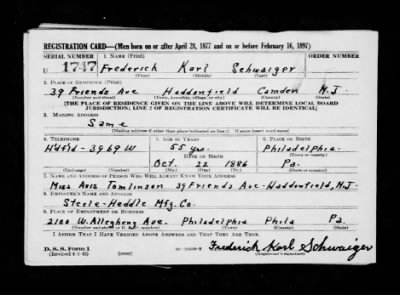 REGISTRATION CARD—(Men born on or after April 28, 1877 and on or before February 16, 1897)
SERIAL NUMBER 1. NAME (Print) ORDER NUMBER
U 1717 Frederick Karl Schwaiger
(First) (Middle) (Last)
2. PLACE OF RESIDENCE (Print)
39 Friends Ave Haddonfield Camden N.J.
(Number and street) (Town, township, village, or city) (County) (State)
[THE PLACE OF RESIDENCE GIVEN ON THE LINE ABOVE WILL DETERMINE LOCAL BOARD
JURISDICTION; LINE 2 OF REGISTRATION CERTIFICATE WILL BE IDENTICAL]
3. MAILING ADDRESS
Same
(Mailing address if other than place indicated on line 2. If same insert word same)
4. TELEPHONE 5. AGE IN YEARS 6. PLACE OF BIRTH
55 yrs. Philadelphia
DATE OF BIRTH (Town or county)
3969 W Oct. 22 1886 Pa.
(Exchange) (Number) (Mo.) (Day) (Yr.) (State or country)
7. NAME AND ADDRESS OF PERSON WHO WILL ALWAYS KNOW YOUR ADDRESS
Miss Avis Tomlinson 39 Friends Ave-Haddonfield, N.J.
8. EMPLOYER'S NAME AND ADDRESS
Steele-Heddle Mfg. Co.
9. PLACE OF EMPLOYMENT OR BUSINESS
2100 W. Allegheny Ave. Philadelphia Phila Pa.
(Number and street or R. F. D. number) (Town) (County) (State)
I AFFIRM THAT I HAVE VERIFIED ABOVE ANSWERS AND THAT THEY ARE TRUE.
D. S. S. Form 1 Frederick Karl Schwaiger
(over) (Registrant's signature)